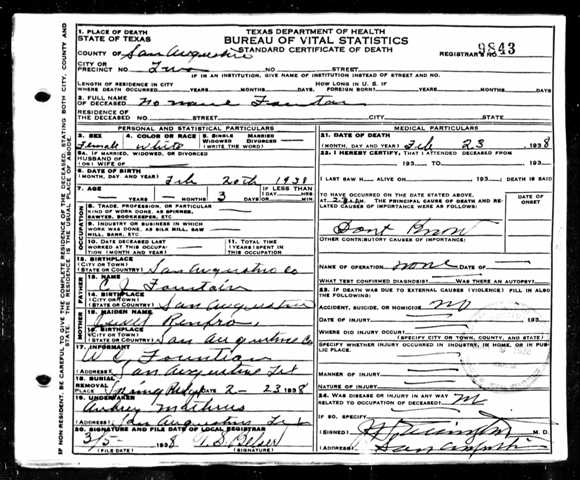 TEXAS DEPARTMENT OF HEALTH
BUREAU OF VITAL STATISTICS
STANDARD CERTIFICATE OF DEATH
REGISTRAR'S NO 9843
1. PLACE OF DEATH
STATE OF TEXAS
COUNTY OF San Augustine
CITY OR PRECINCT NO. Two NO. STREET
IF IN AN INSTITUTION, GIVE NAME OF INSTITUTION INSTEAD OF STREET AND NO.
LENGTH OF RESIDENCE IN CITY WHERE DEATH OCCURRED YEARS MONTHS DAYS
HOW LONG IN U. S. IF FOREIGN BORN? YEARS MONTHS DAYS
2. FULL NAME OF DECEASED no name
RESIDENCE OF THE DECEASED NO. STREET CITY STATE
PERSONAL AND STATISTICAL PARTICULARS
3. SEX Female
4. COLOR OR RACE White
5. SINGLE MARRIED WIDOWED DIVORCED (WRITE THE WORD)
5A. IF MARRIED, WIDOWED, OR DIVORCED
HUSBAND OF
(OR) WIFE OF
6. DATE OF BIRTH
(MONTH, DAY, AND YEAR) Feb 20th 1938
7. AGE YEARS MONTHS 3 DAYS
IF LESS THAN 1 DAY HRS OR MIN
OCCUPATION
8. TRADE, PROFESSION, OR PARTICULAR KIND OF WORK DONE, AS SPINNER, SAWYER, BOOKKEEPER, ETC
9. INDUSTRY OR BUSINESS IN WHICH WORK WAS DONE, AS SILK MILL, SAW MILL, BANK, ETC
10. DATE DECEASED LAST WORKED AT THIS OCCUPATION (MONTH AND YEAR)
11. TOTAL TIME (YEARS) SPENT IN THIS OCCUPATION
12. BIRTHPLACE
(CITY OR TOWN)
(STATE OR COUNTRY) San Augustine Co
FATHER
13. NAME Fountain
14. BIRTHPLACE
(CITY OR TOWN)
(STATE OR COUNTRY) San Augustine
MOTHER
15. MAIDEN NAME Renfro
16. BIRTHPLACE
(CITY OR TOWN)
(STATE OR COUNTRY) San Augustine Co
17. INFORMANT
(ADDRESS) San Augustine
18. BURIAL REMOVAL
PLACE 2-23 1938
19. UNDERTAKER
Aubrey Mathews
(ADDRESS) San Augustine
20. SIGNATURE AND FILE DATE OF LOCAL REGISTRAR
3/5- 1938
MEDICAL PARTICULARS
21. DATE OF DEATH
(MONTH, DAY, AND YEAR) Feb 23 1938
22. I HEREBY CERTIFY, THAT I ATTENDED DECEASED FROM
193 TO 193
I LAST SAW H ALIVE ON 193 DEATH IS SAID
TO HAVE OCCURRED ON THE DATE STATED ABOVE,
AT M. THE PRINCIPAL CAUSE OF DEATH AND RELATED CAUSES OF IMPORTANCE WERE AS FOLLOWS:
DATE OF ONSET
Dont Know
OTHER CONTRIBUTORY CAUSES OF IMPORTANCE:
NAME OF OPERATION none DATE OF
WHAT TEST CONFIRMED DIAGNOSIS? WAS THERE AN AUTOPSY
23. IF DEATH WAS DUE TO EXTERNAL CAUSES (VIOLENCE) FILL IN ALSO THE FOLLOWING:
ACCIDENT, SUICIDE, OR HOMICIDE? no
DATE OF INJURY 193
WHERE DID INJURY OCCUR?
(SPECIFY CITY OR TOWN, COUNTY, AND STATE)
SPECIFY WHETHER INJURY OCCURRED IN INDUSTRY, IN HOME, OR IN PUBLIC PLACE.
MANNER OF INJURY
NATURE OF INJURY
24. WAS DISEASE OR INJURY IN ANY WAY RELATED TO OCCUPATION OF DECEASED?
IF SO, SPECIFY
(SIGNED) M. D.
(ADDRESS) San Augustine